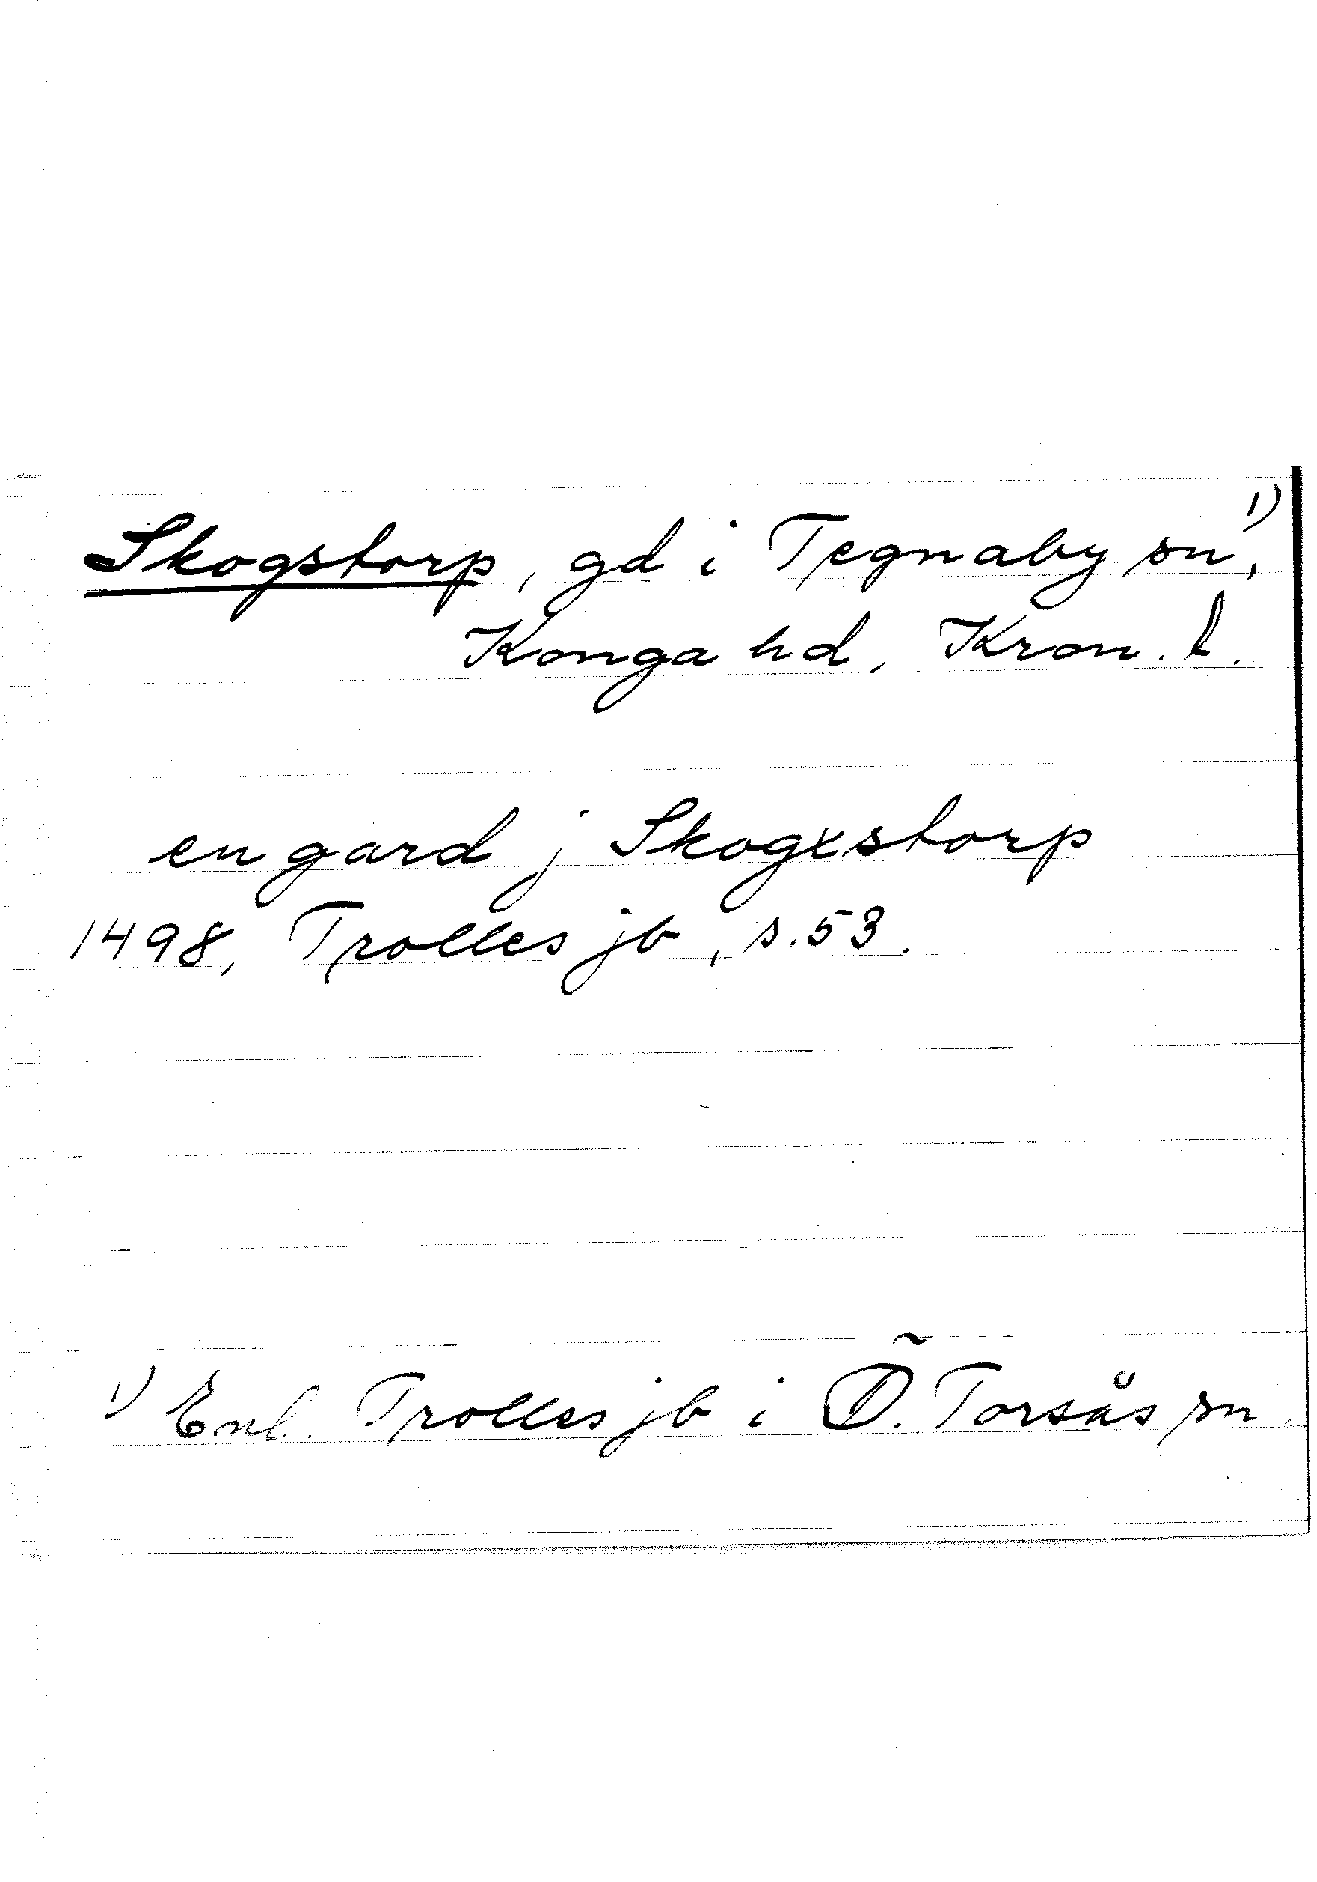 Skogstorp, gd i Tegnaby sn 1),
Konga hd, Kron. l.
en gard j Skogxstorp
1498, Trolles jb, s. 53.
1) Enl. Trolles jb i Ö. Torsås sn.